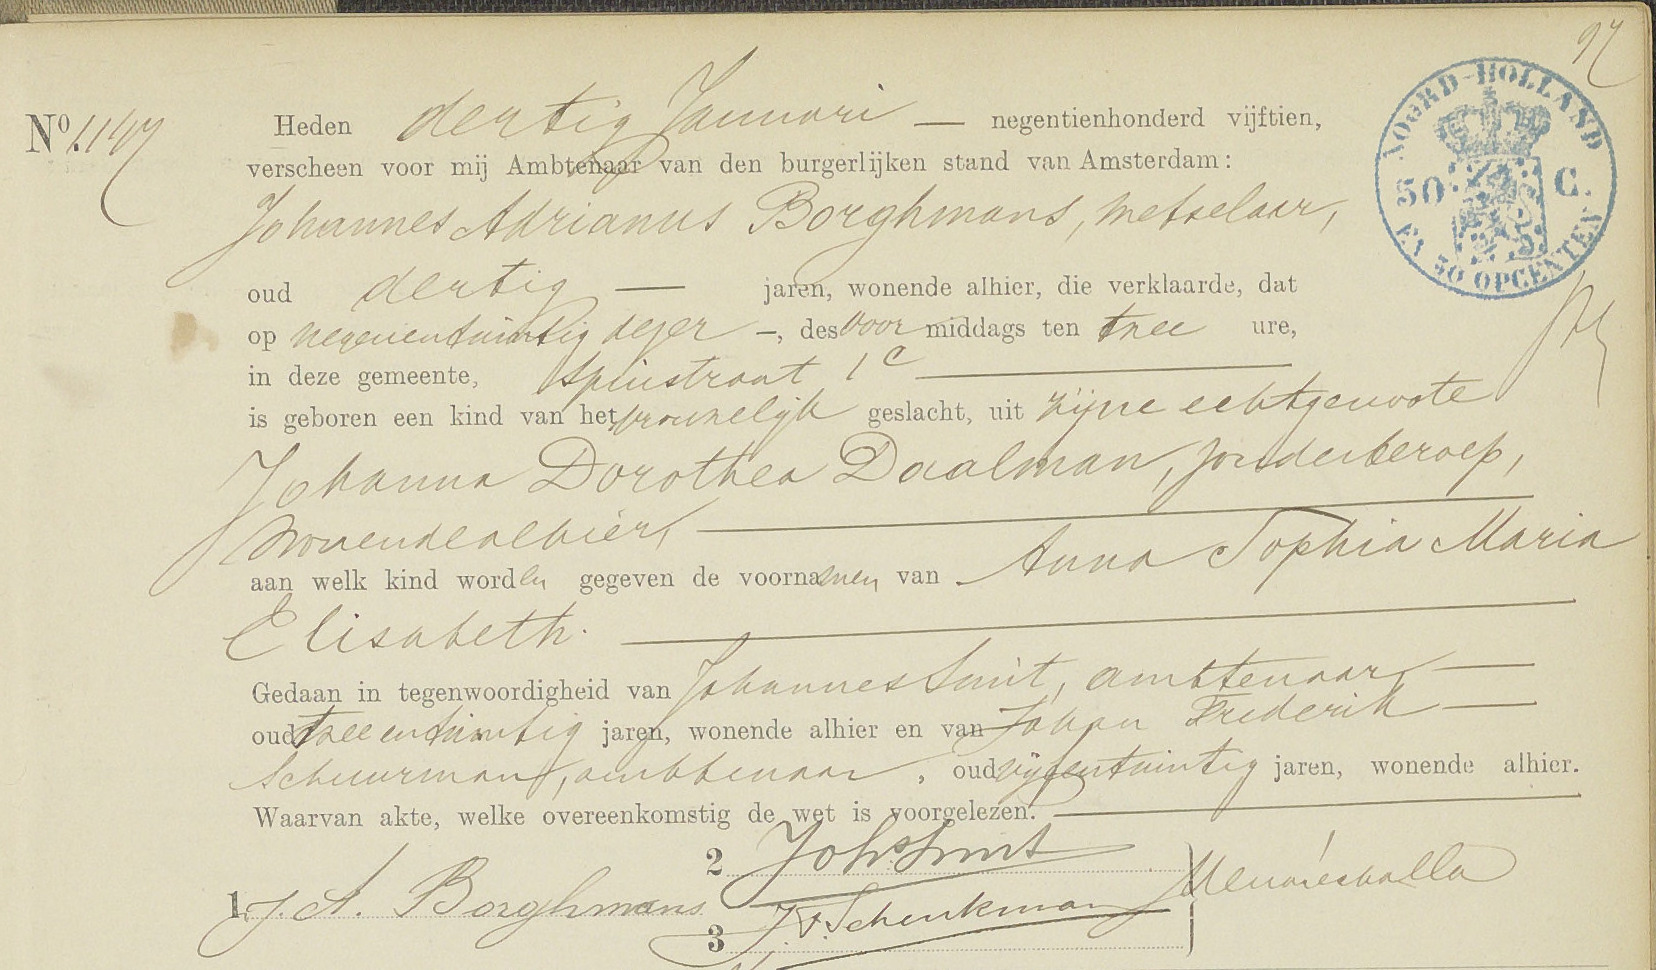 97
NOORD-HOLLAND
50 C.
EN 50 OPCENTEN
No. 1197
Heden dertig Januari — negentienhonderd vijftien,
verscheen voor mij Ambtenaar van den burgerlijken stand van Amsterdam:
Johannes Adrianus Borghmans, metselaar,
oud dertig — jaren, wonende alhier, die verklaarde, dat
op negenentwintig dezer —, des voor middags ten twee ure,
in deze gemeente, Spinstraat 1c
is geboren een kind van het vrouwelijk geslacht, uit zijne echtgenoote
Johanna Dorothea Daalman, zonder beroep,
wonende alhier,
aan welk kind worden gegeven de voornamen van Anna Sophia Maria
Elisabeth.
Gedaan in tegenwoordigheid van Johannes Smit, ambtenaar, —
oud tweeentwintig jaren, wonende alhier en van Johan Frederik —
ambtenaar, oud vijfentwintig jaren, wonende alhier.
Waarvan akte, welke overeenkomstig de wet is voorgelezen.
2 Johs Smit
1 J. A. Borghmans
3 J. F. Schenkman